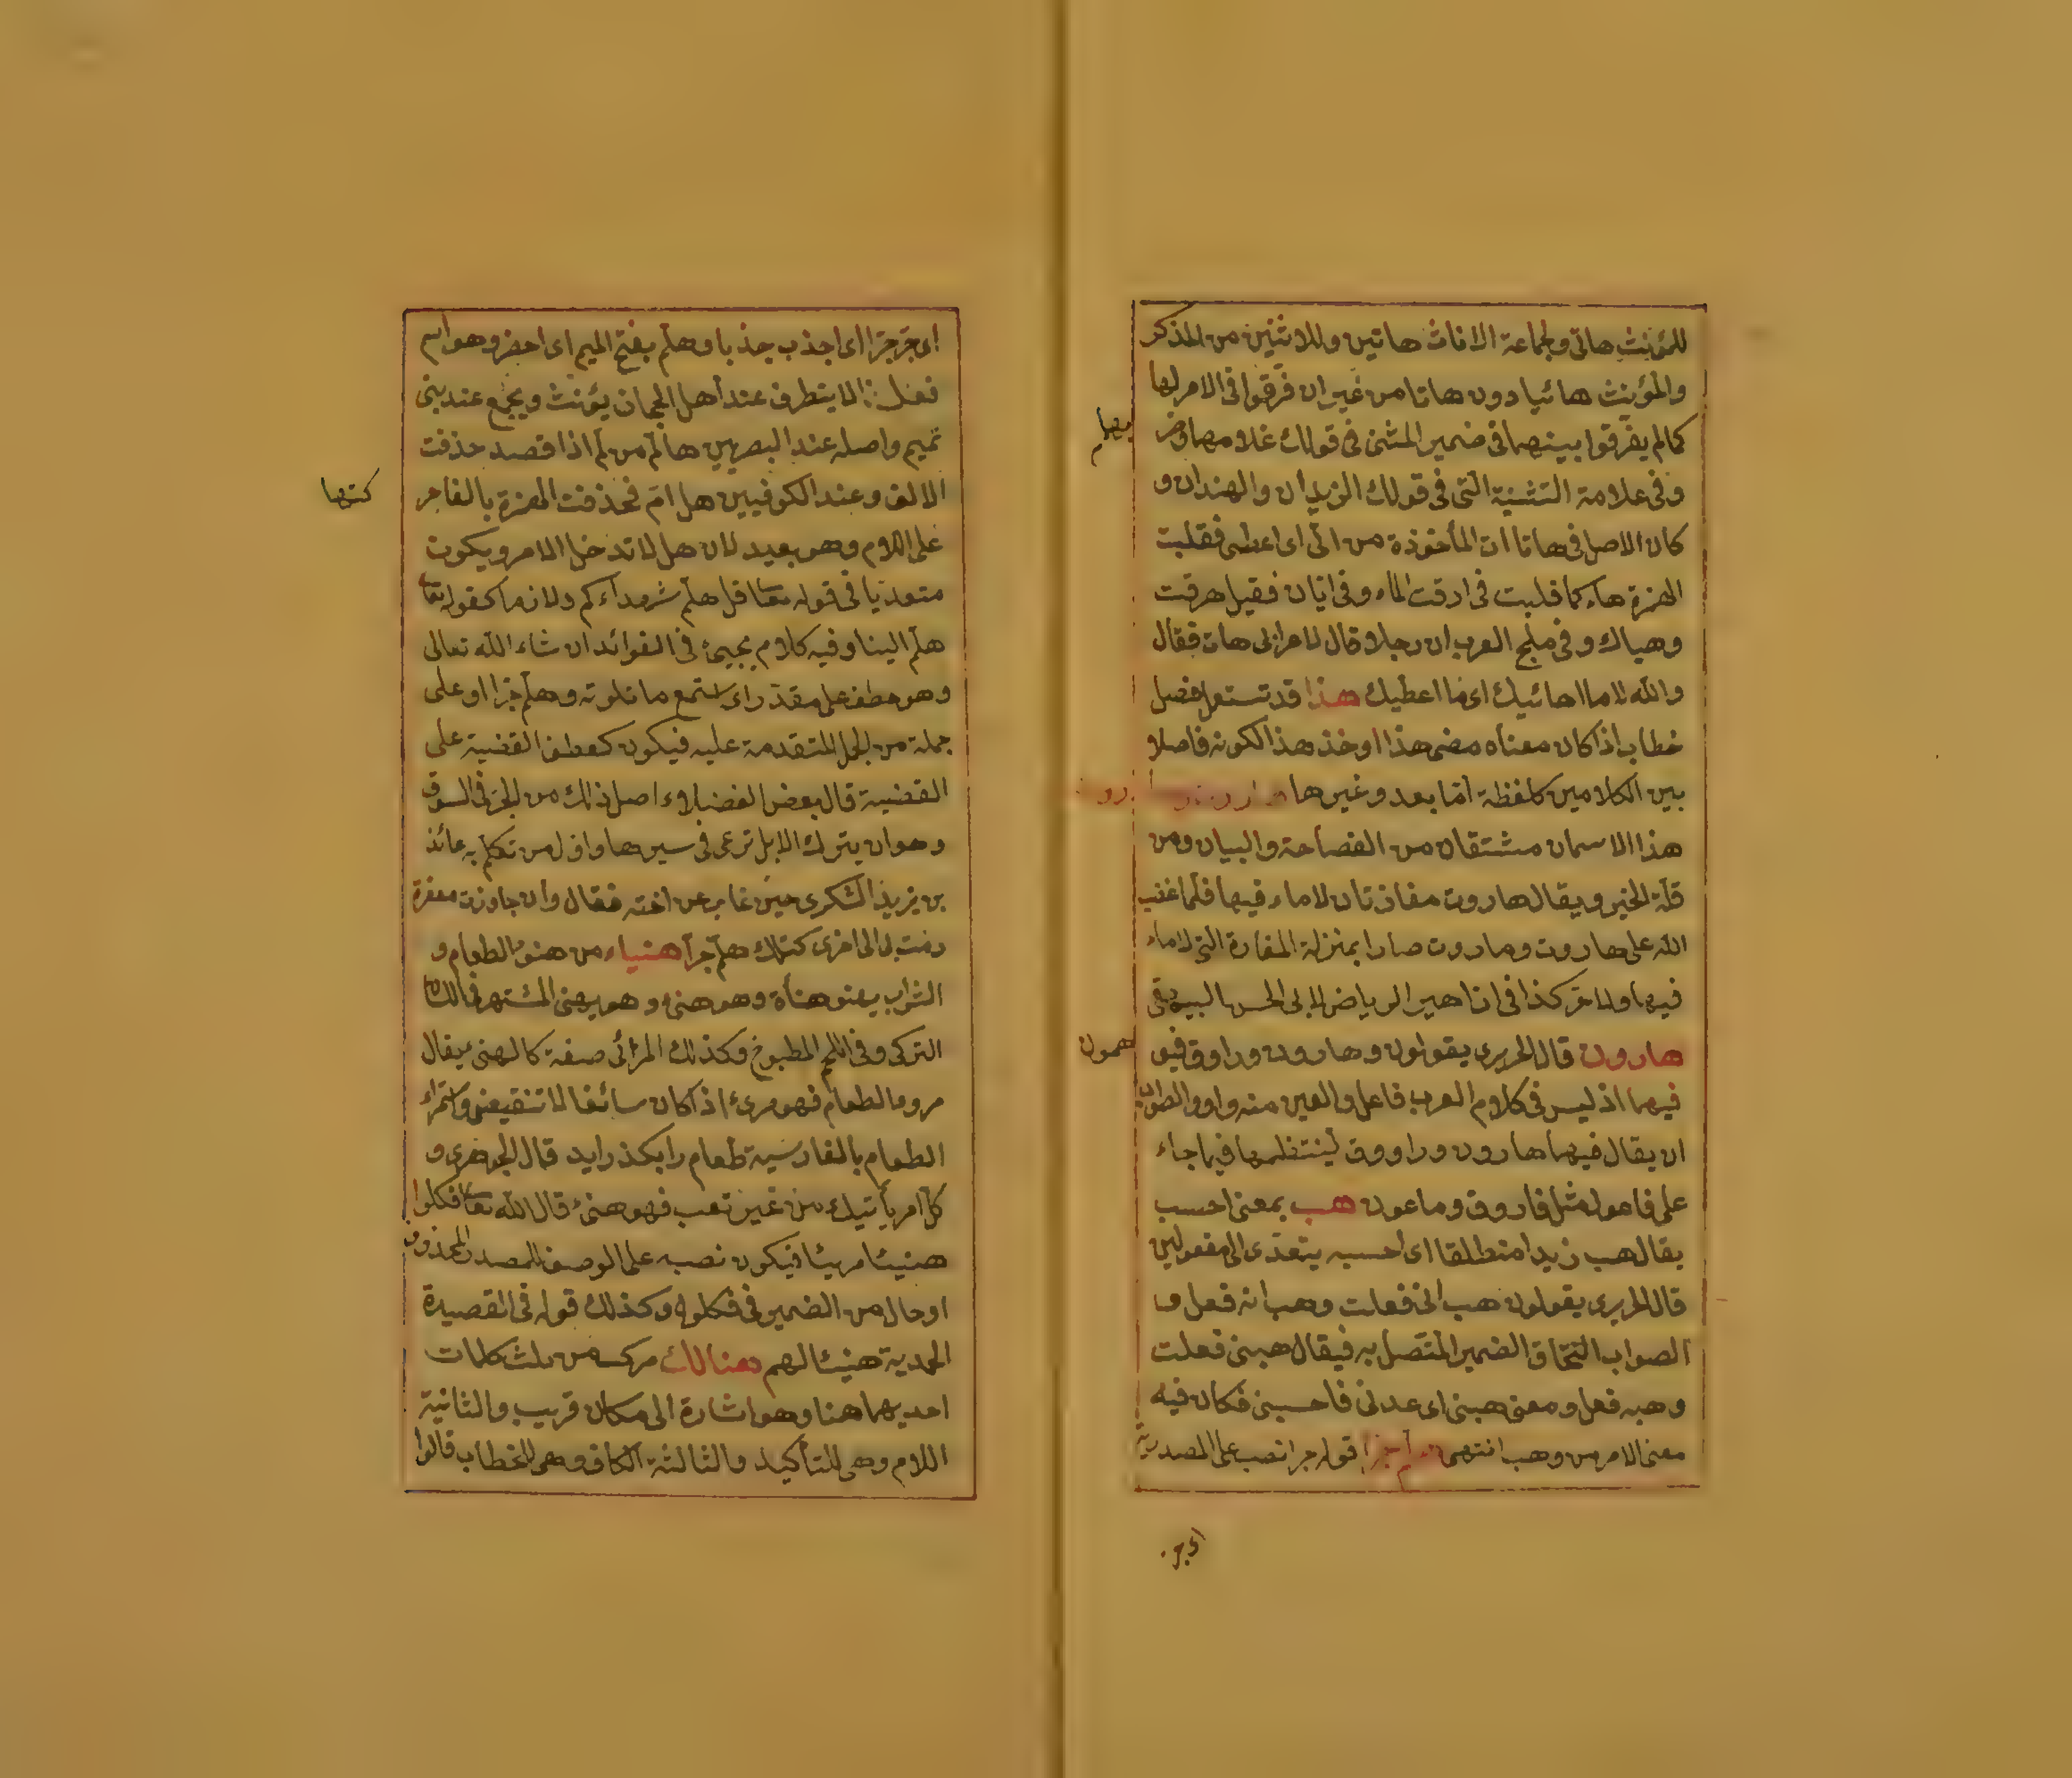 للمؤنث هاتى ولجماعة الاناث هاتين وللاثنين من المذكر
والمؤنث هاتيا دون هاتا من غير ان فرقوا فى الامر لهما
كما لم يفرقوا بينهما فى ضمير المثنى فى قولك غلامهما وضر
بهما
وفى علامة التثنية التى فى قولك الزيدان والهندان و
كان الاصل فى هاتا ات المأخوذة من اتى اى اعطى فقلبت
الهمزة هاء كما قلبت فى ارقت الماء وفى اياك فقيل هرقت
وهياك وفى ملح العرب ان رجلا قال لاعرابى هات فقال
والله لا ما اهاتيك اى ما اعطيك هذا قد تستعمل فصل
خطاب اذ كان معناه مضى هذا او خذ هذا لكونه فاصلا
بين الكلامين كلفظة اما بعد وغيرها
هذا الاسمان مشتقان من الفصاحة والبيان ومن
قلة الخير ويقال هاروت مفازتان لا ماء فيها فلما غضب
الله على هاروت وماروت صارا بمنزلة المفازة التى لا ماء
فيها ولا خير كذا فى ازاهير الرياض لابى الحسن البيهقى
هارون قال الحريرى يقولون وهارون وراوق فيو
همون
فيهما اذ ليس فى كلام العرب فاعل والعين منه واو والصواب
ان يقال فيهما هارون وراووق لينتظما فيما جاء
على فاعول مثل فاروق وماعون هب بمعنى احسب
يقال هب زيدا منطلقا اى احسبه يتعدى الى مفعولين
قال الحريرى يقولون هب انى فعلت وهب انه فعل و
الصواب التحاق الضمير المتصل به فيقال هبنى فعلت
وهبه فعل ومعنى هبنى اى عدنى فاحسبنى فكان فيه
معنى الامر من وهب انتهى هلم جرا قوله جرا نصب على المصدرية
اى جر
اى جر جرا اى اجذب جذبا وهلم بفتح الميم اى احضر وهو اسم
فعل لا يتطرف عند اهل الحجاز يؤنث ويجمع عند بنى
تميم واصله عند البصريين هالم من لم اذا قصد حذفت
الالف وعند الكوفيين هل ام فحذفت الهمزة بالقاء حر
كتها
على اللام وهو بعيد لان هل لا تدخل الامر ويكون
متعديا فى قوله تعالى قل هلم شهداءكم ولازما كقوله تعالى
هلم الينا وفيه كلام يجيئ فى الفوائد ان شاء الله تعالى
وهو عطف على مقدر اى استمع ما تلوته وهلم جرا او على
جملة من الجمل المتقدمة عليه فيكون كعطف القضية على
القضية قال بعض الفضلاء اصل ذلك من الجر فى السوق
وهو ان يترك الابل ترعى فى سيرها واول من تكلم به عائذ
بن يزيد اليشكرى حين غاب عن اخته فقال وان جاوزت مقفرة
رمت بى الى اخرى كتلك هلم جرا هنياء من هنؤ الطعام و
الشراب يهنو هنأة وهو هنئ وهو يهنى المشتهر فى لسان
التركى وفى اللحم المطبوخ وكذلك المرائى صفة كالهنئ يقال
مروء الطعام فهو مرئ اذ كان سائغا لا تنقيص واستمراء
الطعام بالفارسية طعام را بكذرايد قال الجوهرى و
كل امر يأتيك من غير تعب فهو هنئ قال الله تعالى فكلوا
هنيئا مريئا فيكون نصبه على الوصف للمصدر المحذوف
او حال من الضمير فى فكلوا وكذلك قوله فى القصيدة
المحمدية هنيئا لهم هنالك مركب من ثلث كلمات
احديهما هنا وهو اشارة الى مكان قريب والثانية
اللام وهى للتأكيد والثالثة الكاف وهى للخطاب قالوا